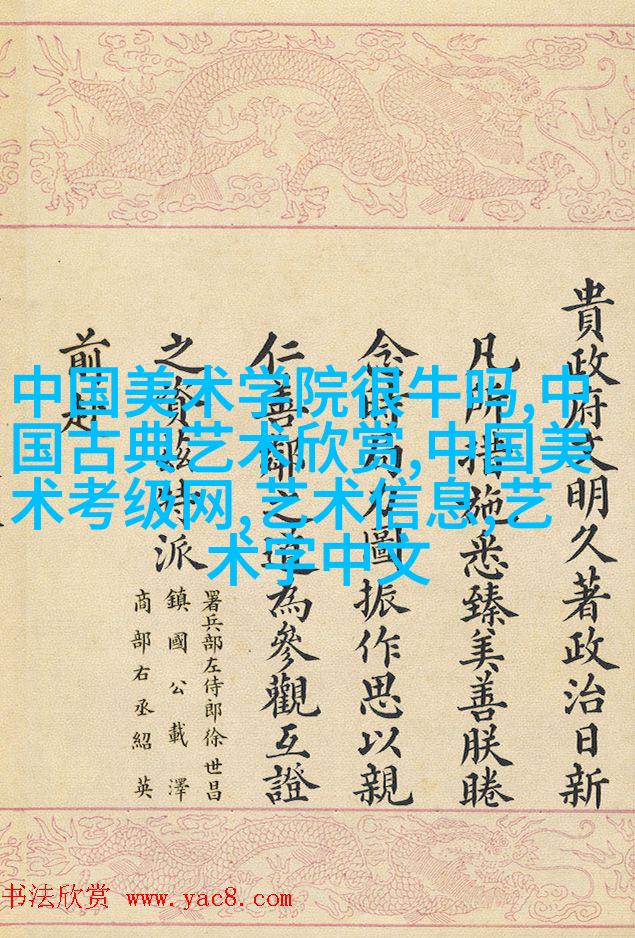 貴政府文明久著政治日新
凡所措施悉臻美善朕睠
念時局力圖振作思以親
仁善鄰之道為參觀互證
之資茲特派
署兵部左侍郎徐世昌
鎮國公載澤
商部右丞紹英
前赴
中国美术学院很牛吗,中
国古典艺术欣赏,中国美
术考级网,艺术信息,艺
术字中文
书法欣赏 www.yac8.com